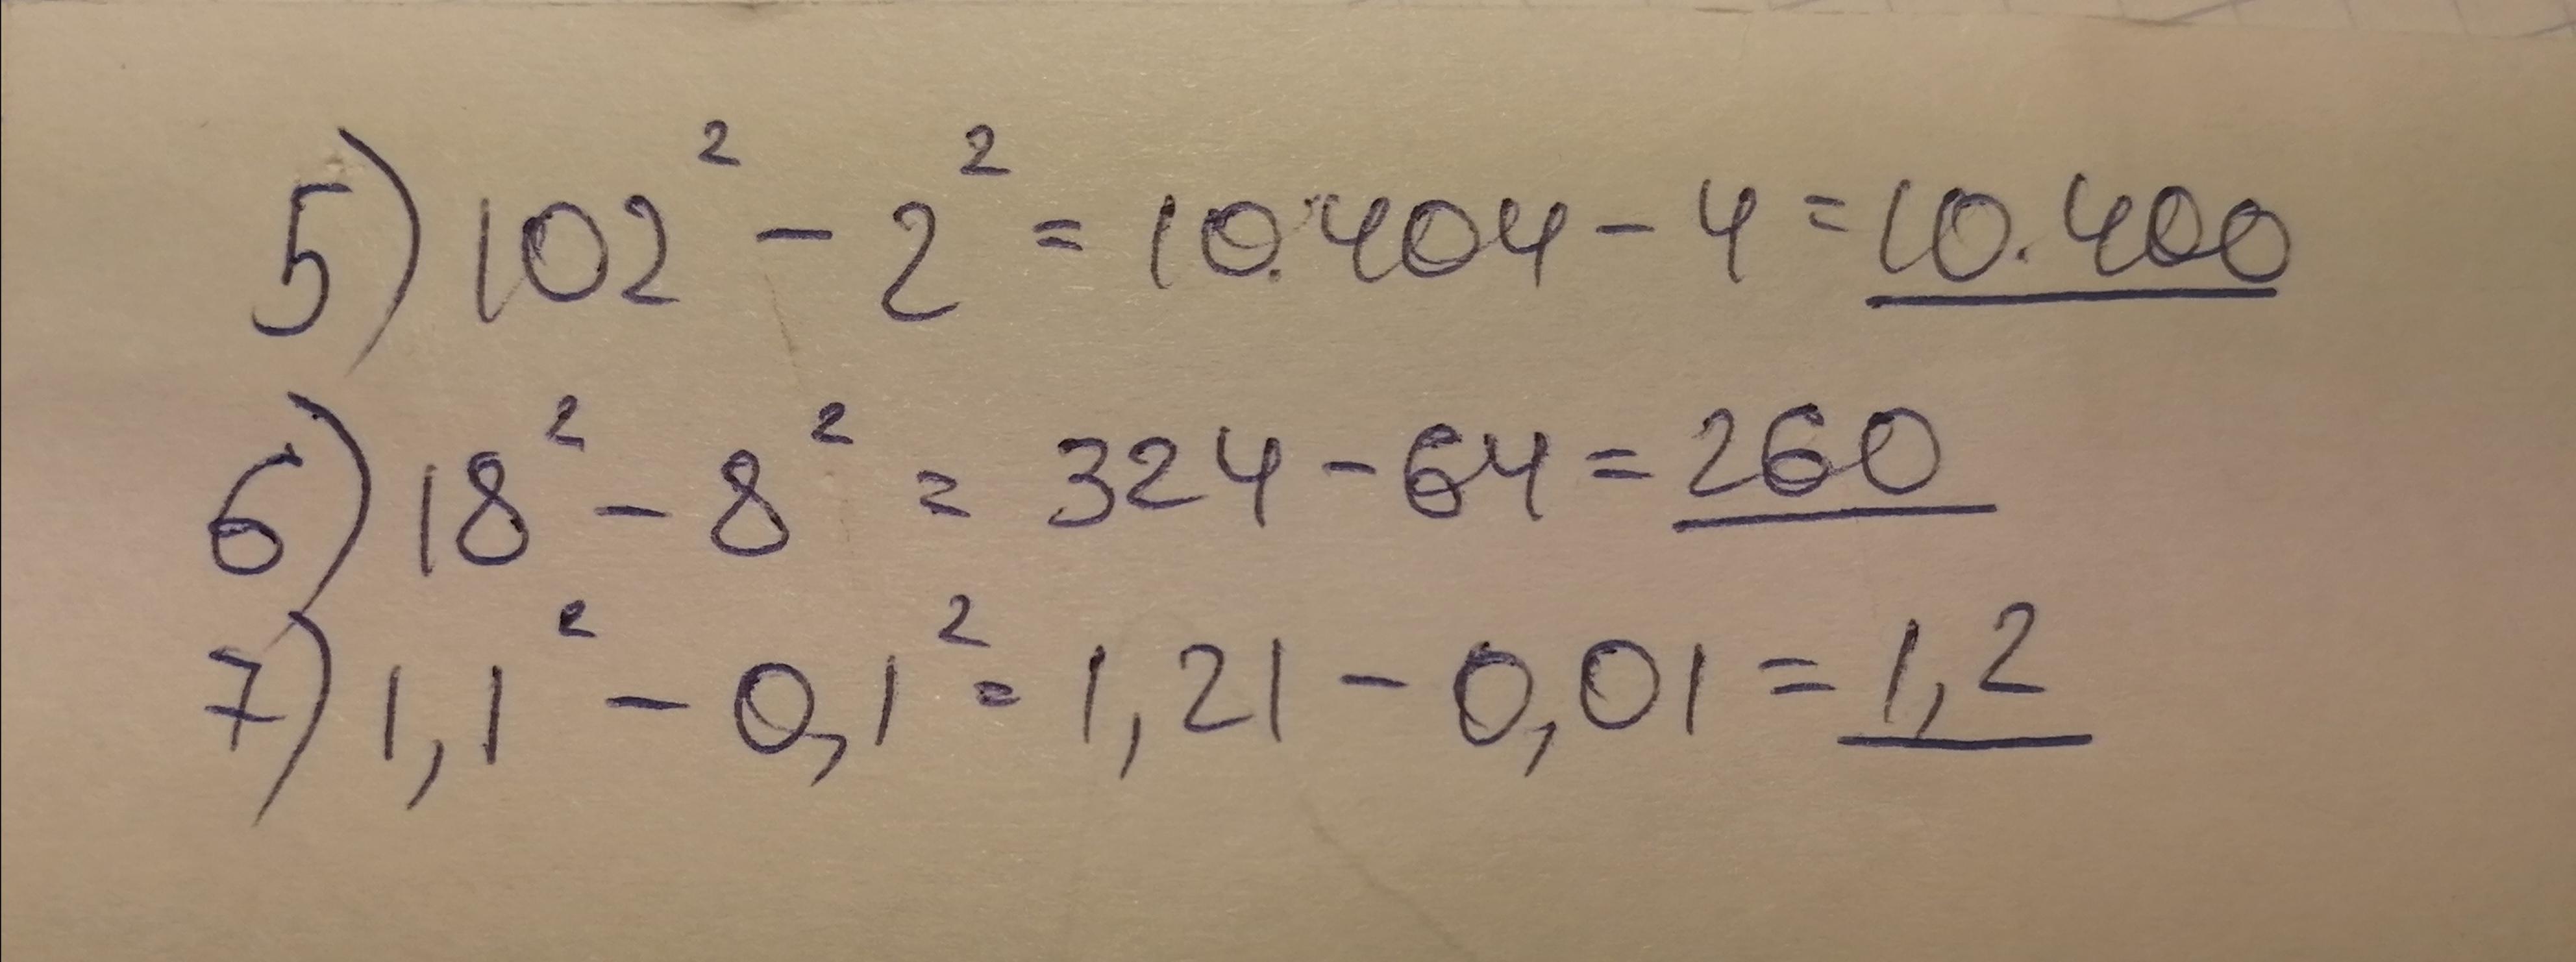 5) 102² - 2² = 10.404 - 4 = 10.400
6) 18² - 8² = 324 - 64 = 260
7) 1,1² - 0,1² = 1,21 - 0,01 = 1,2